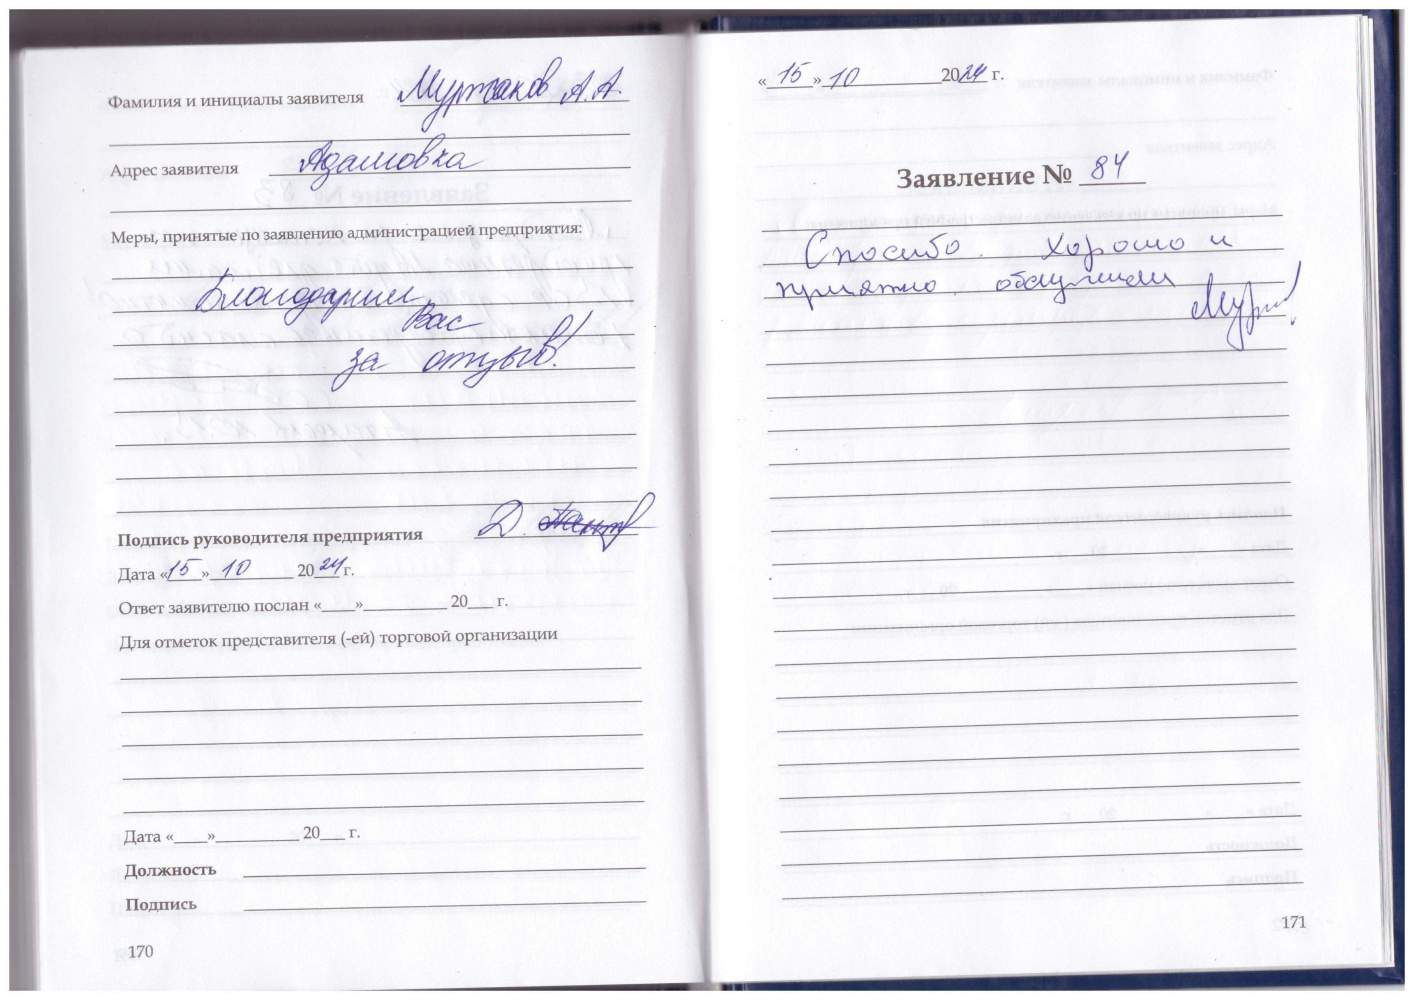 Фамилия и инициалы заявителя Муртаков А.А.
Адрес заявителя Адамовка
Меры, принятые по заявлению администрацией предприятия:
Благодарим
Вас
за отзыв!
Подпись руководителя предприятия Д.
Дата «15» 10 2024 г.
Ответ заявителю послан «____»__________ 20___ г.
Для отметок представителя (-ей) торговой организации
Дата «____»__________ 20___ г.
Должность
Подпись
170
«15» 10 2024 г.
Заявление № 84
Спосибо. Хорошо и
приятно обслужили
171